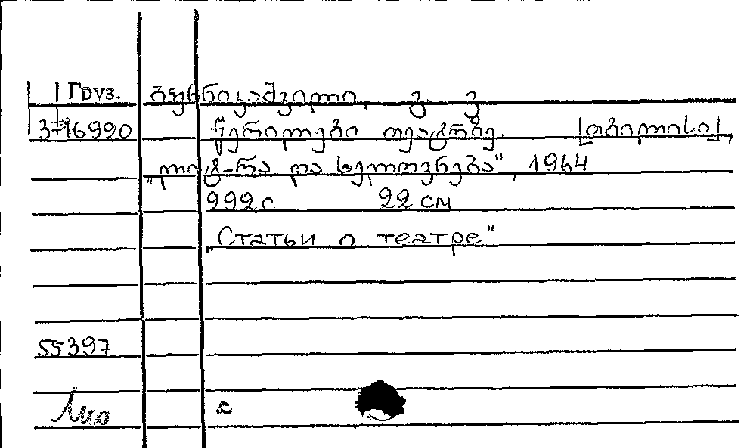 Груз. ბუხნიკაშვილი, გ. ვ
3-76990 წერილები თეატრზე. [თბილისი],
„ლიტ-რა და ხელოვნება", 1964
222с 22 см
„Статьи о театре"
55397
с